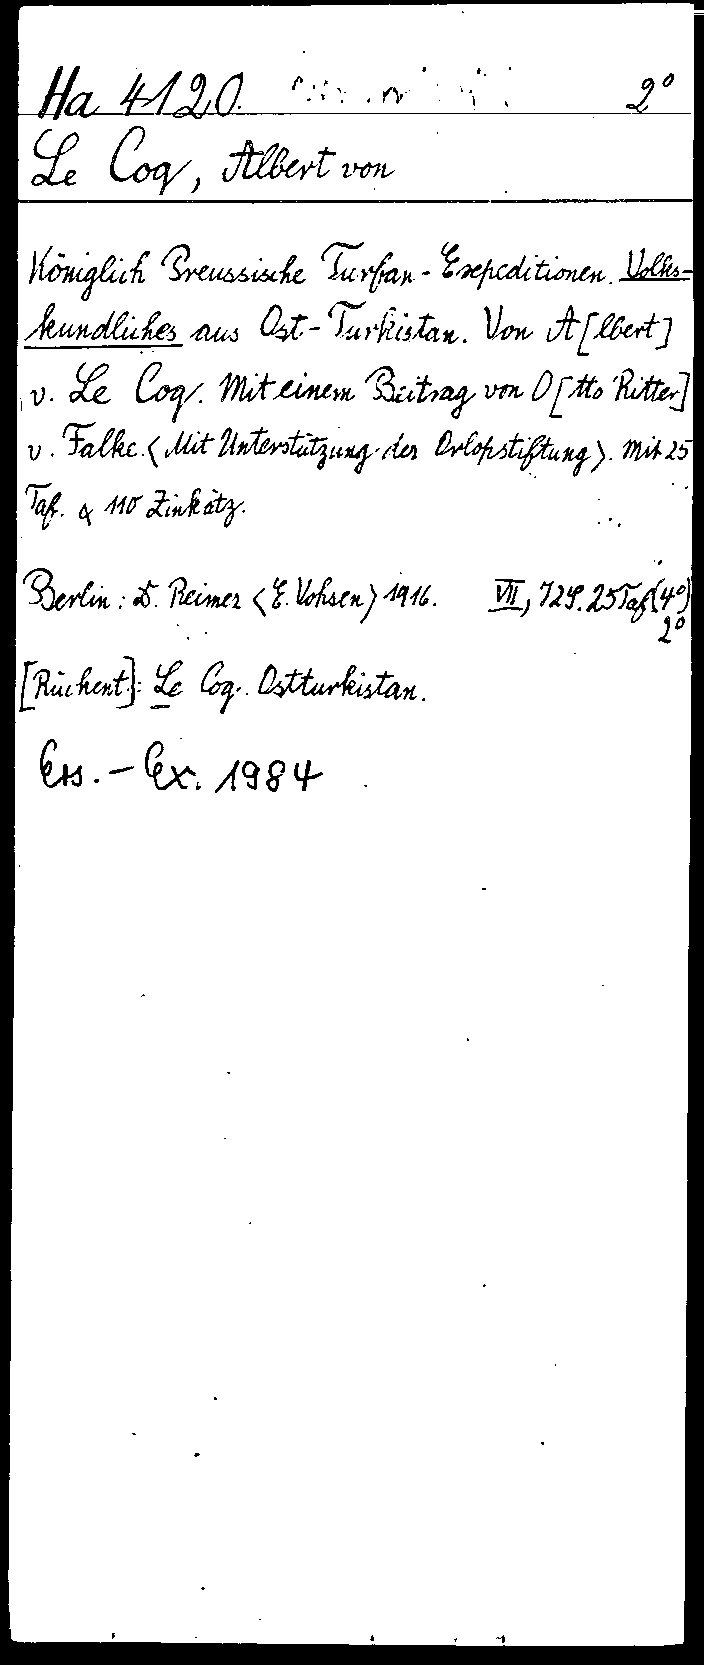 Ha 4120. 2°
Le Coq, Albert von
Königlich Preussische Turfan-Expeditionen. Volks-
kundliches aus Ost-Turkistan. Von A[lbert]
v. Le Coq. Mit einem Beitrag von O[tto Ritter]
v. Falke. <Mit Unterstützung der Orlopstiftung>. Mit 25
Taf. & 110 Zinkätz.
Berlin: D. Reimer <E. Vohsen> 1916. VII, 72 S. 25 Taf (4°)
2°
[Rückent]: Le Coq. Ostturkistan.
Ers.-Ex. 1984